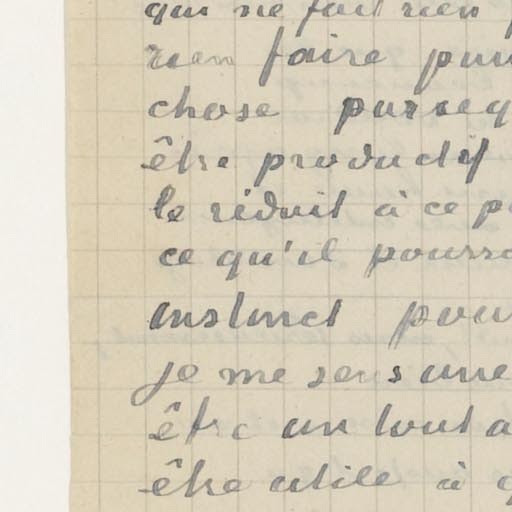 qui ne fait rien
rien faire
chose parceq
être productif
le réduit à ce p
ce qu'il pourra
instinct pour
je me sens une
être un tout a
être utile à q